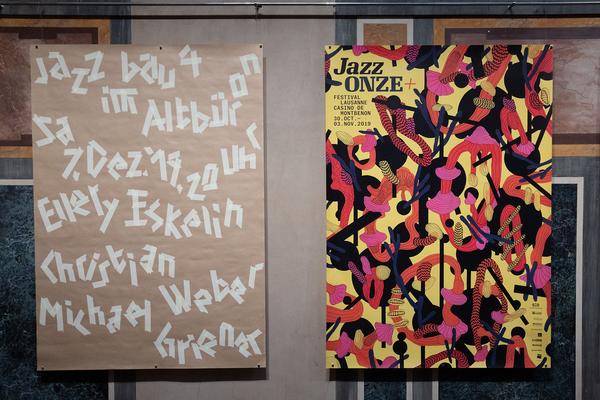 Jazz bau 4
im Altbüron
Sa
7. Dez. '19, 20 Uhr
Ellery Eskelin
Christian
Weber
Michael
Griener
Jazz
ONZE+
FESTIVAL
LAUSANNE
CASINO DE
MONTBENON
30.OCT.–
03.NOV.2019